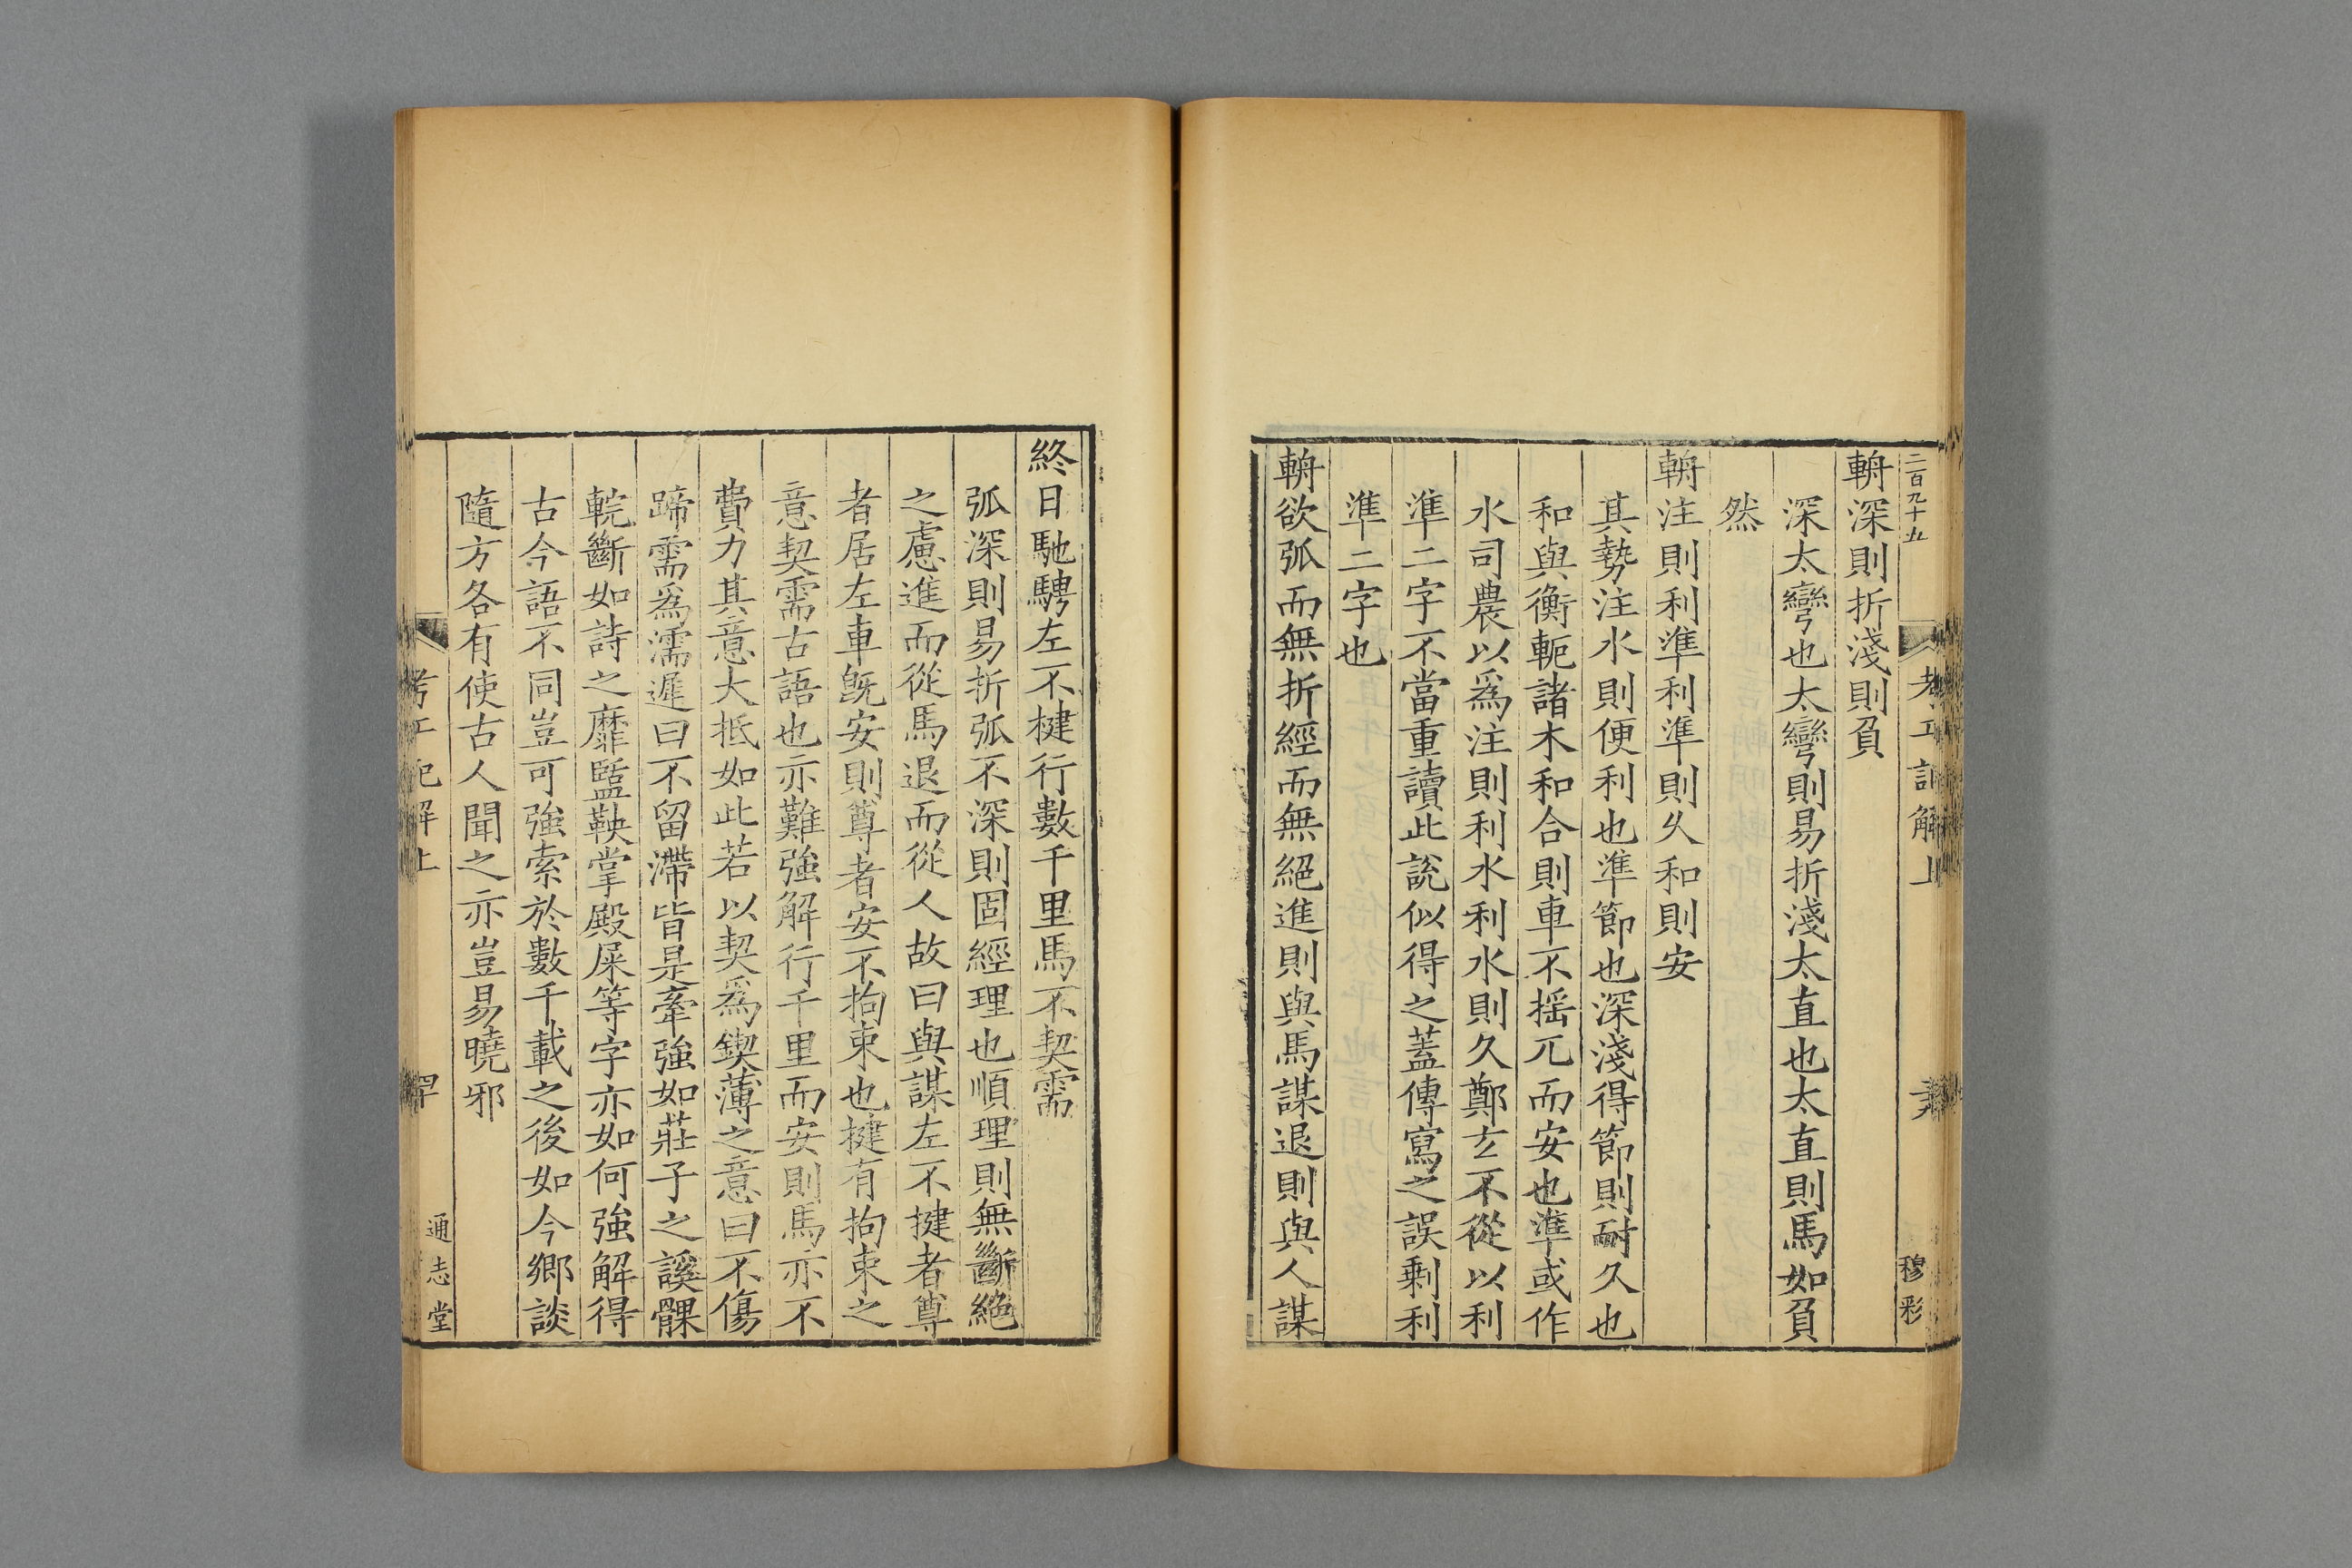 二百九十五
輈深則折淺則負
深太彎也太彎則易折淺太直也太直則馬如負
然
輈注則利準利準則久和則安
其勢注水則便利也準節也深淺得節則耐久也
和與衡軛諸木和合則車不摇兀而安也準或作
水司農以爲注則利水利水則久鄭玄不從以利
準二字不當重讀此説似得之蓋傳寫之誤剩利
準二字也
輈欲弧而無折經而無絕進則與馬謀退則與人謀
終日馳騁左不楗行數千里馬不契需
弧深則易折弧不深則固經理也順理則無斷絶
之慮進而從馬退而從人故曰與謀左不揵者尊
者居左車旣安則尊者安不拘束也揵有拘束之
意契需古語也亦難強解行千里而安則馬亦不
費力其意大抵如此若以契爲鍥薄之意曰不傷
蹄需爲濡遲曰不留滯皆是牽強如莊子之謑髁
輐斷如詩之靡盬鞅掌殿屎等字亦如何強解得
古今語不同豈可強索於數千載之後如今鄉談
隨方各有使古人聞之亦豈易曉邪
考工記解上
穆彩
通志堂